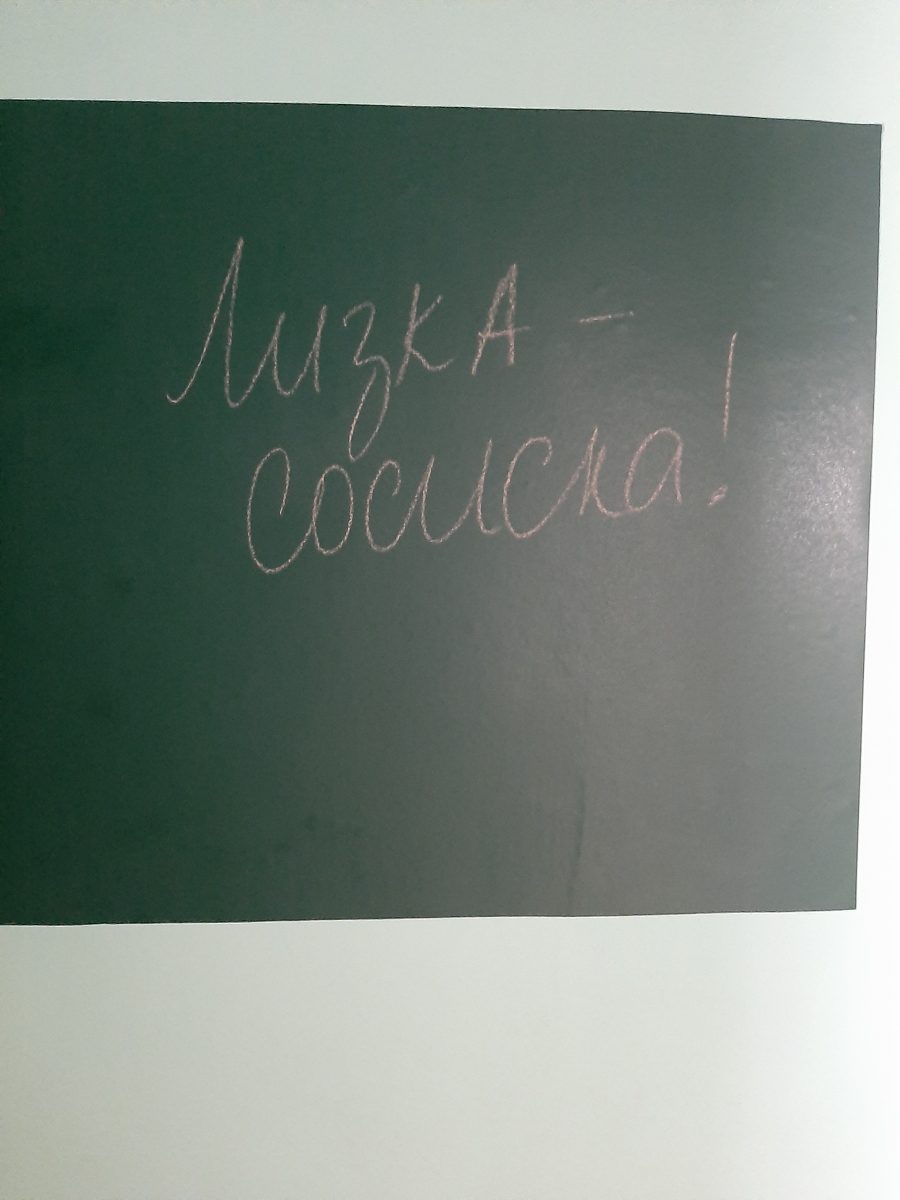 Лизка –
сосиска!